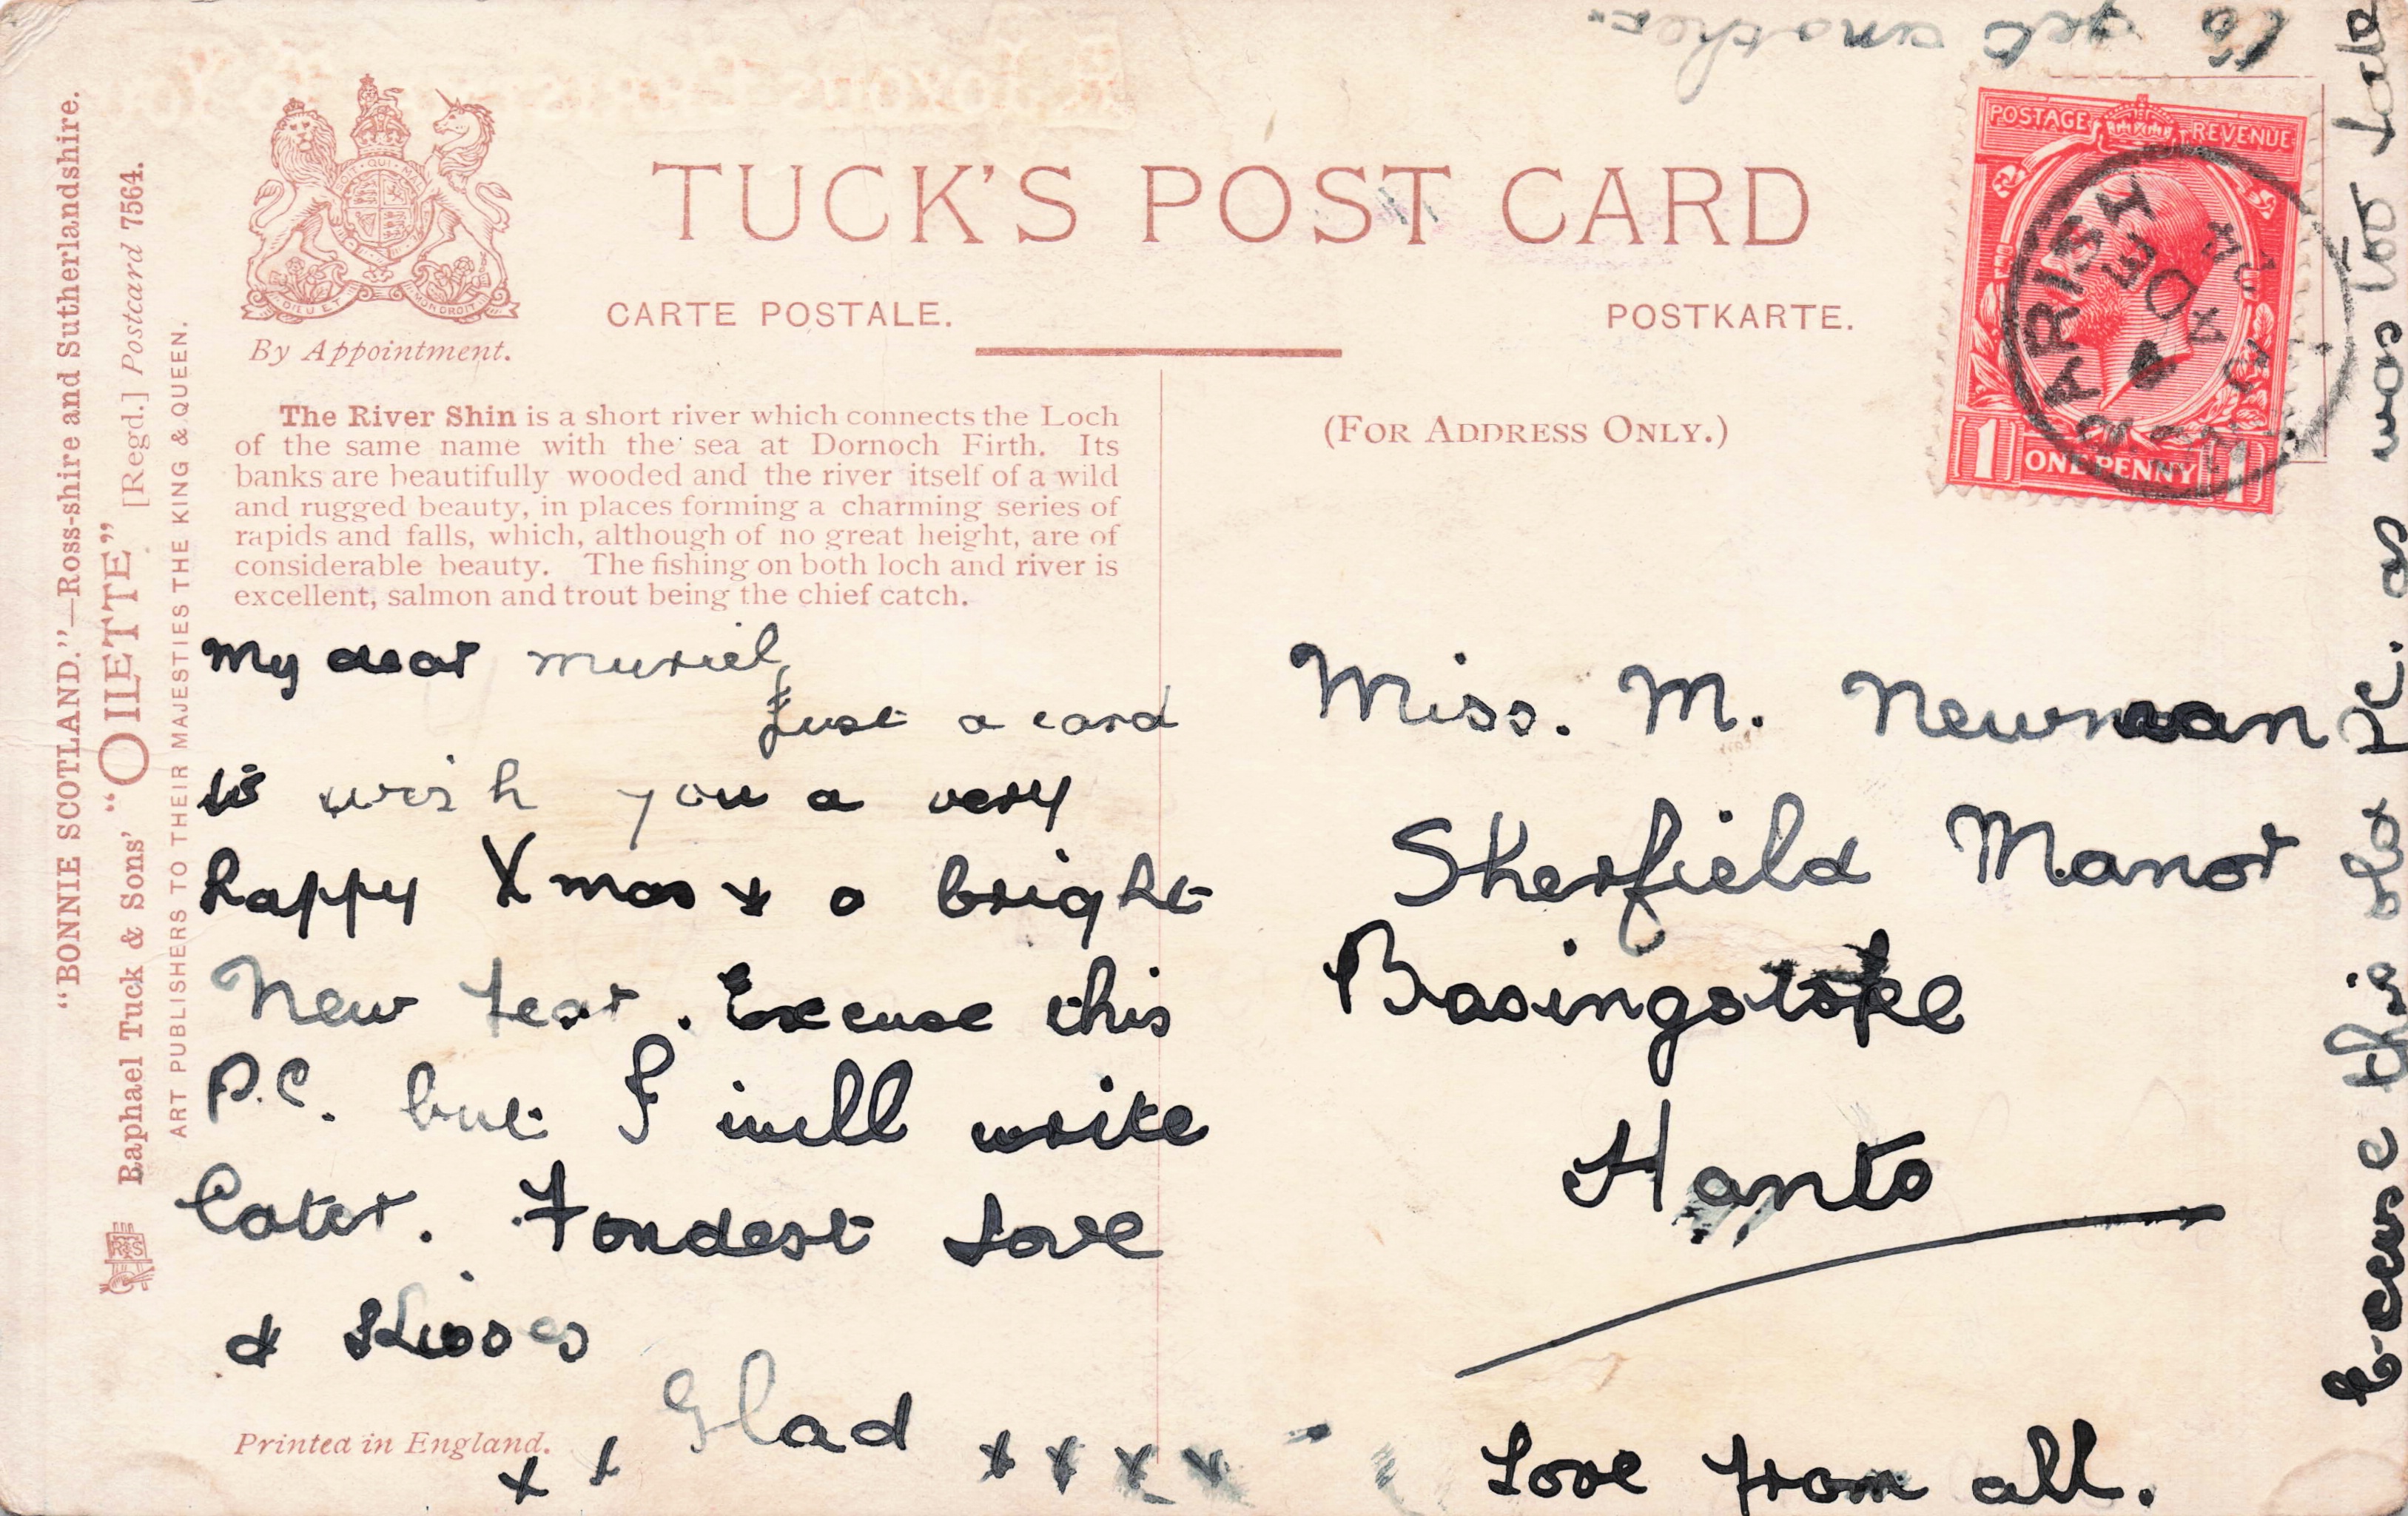 "BONNIE SCOTLAND."—Ross-shire and Sutherlandshire.
Raphael Tuck & Sons' "OILETTE" [Regd.] Postcard 7564.
ART PUBLISHERS TO THEIR MAJESTIES THE KING & QUEEN.
By Appointment.
DIEU ET MON DROIT
TUCK'S POST CARD
CARTE POSTALE.
POSTKARTE.
POSTAGE REVENUE
1 ONE PENNY 1
PARISH
DE
24
The River Shin is a short river which connects the Loch
of the same name with the sea at Dornoch Firth. Its
banks are beautifully wooded and the river itself of a wild
and rugged beauty, in places forming a charming series of
rapids and falls, which, although of no great height, are of
considerable beauty. The fishing on both loch and river is
excellent, salmon and trout being the chief catch.
My dear Muriel,
Just a card
to wish you a very
happy Xmas & a bright
New Year. Excuse this
P.C. but I will write
later. Fondest Love
& Kisses
Glad
x x x x x x
Printed in England.
(FOR ADDRESS ONLY.)
Miss. M. Newman
Sherfield Manor
Basingstoke
Hants
Love from all.
Excuse this old PC. as was too late
to get another.